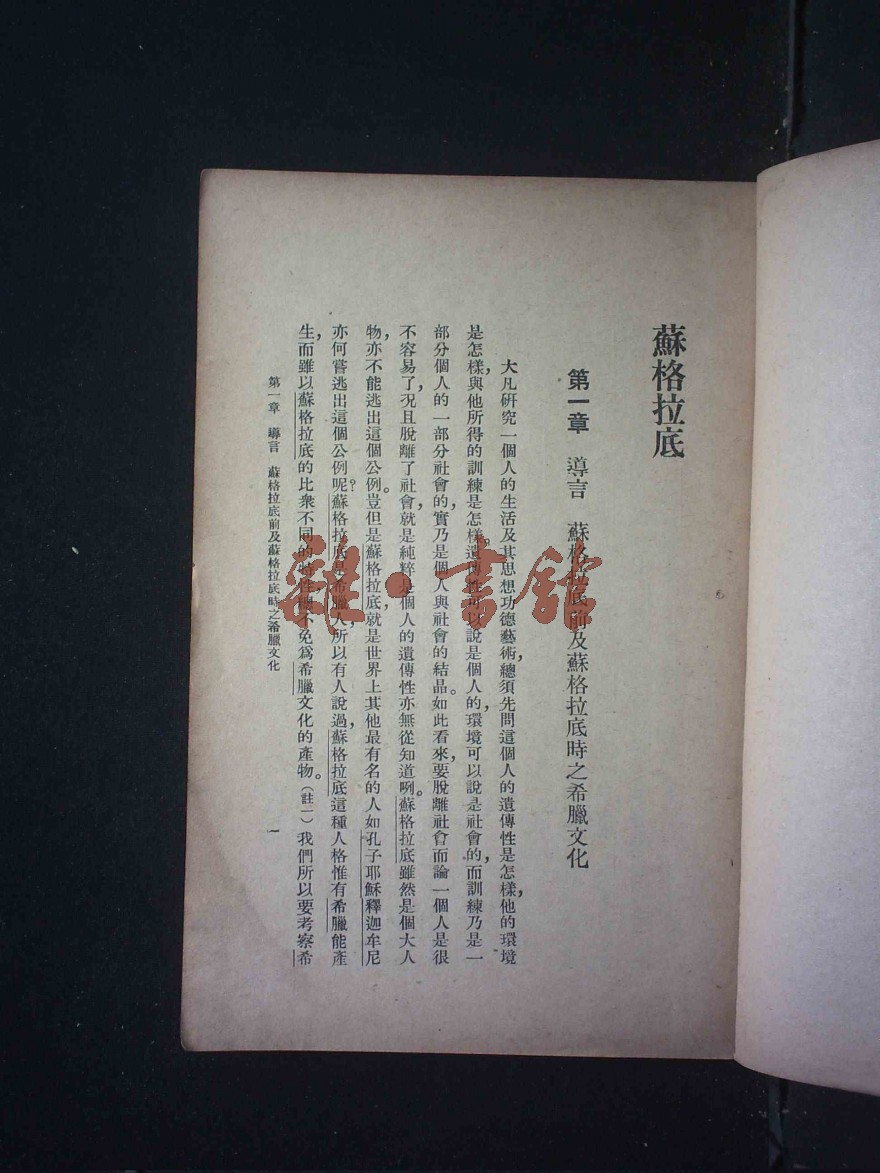 蘇格拉底
第一章　導言　蘇格拉底前及蘇格拉底時之希臘文化
大凡研究一個人的生活及其思想功德藝術，總須先問這個人的遺傳性是怎樣，他的環境
是怎樣，與他所得的訓練是怎樣。遺傳性可以說是個人的，環境可以說是社會的，而訓練乃是一
部分個人的一部分社會的，實乃是個人與社會的結晶。如此看來，要脫離社會而論一個人是很
不容易了，况且脫離了社會，就是純粹是個人的遺傳性亦無從知道咧。蘇格拉底雖然是個大人
物，亦不能逃出這個公例。豈但是蘇格拉底，就是世界上其他最有名的人如孔子耶穌釋迦牟尼
亦何嘗逃出這個公例呢？蘇格拉底是希臘人，所以有人說過，蘇格拉底這種人格惟有希臘能產
生，而雖以蘇格拉底的比衆不同的特性，總不免爲希臘文化的產物。（註一）我們所以要考察希
第一章　導言　蘇格拉底前及蘇格拉底時之希臘文化
一
雜·書館